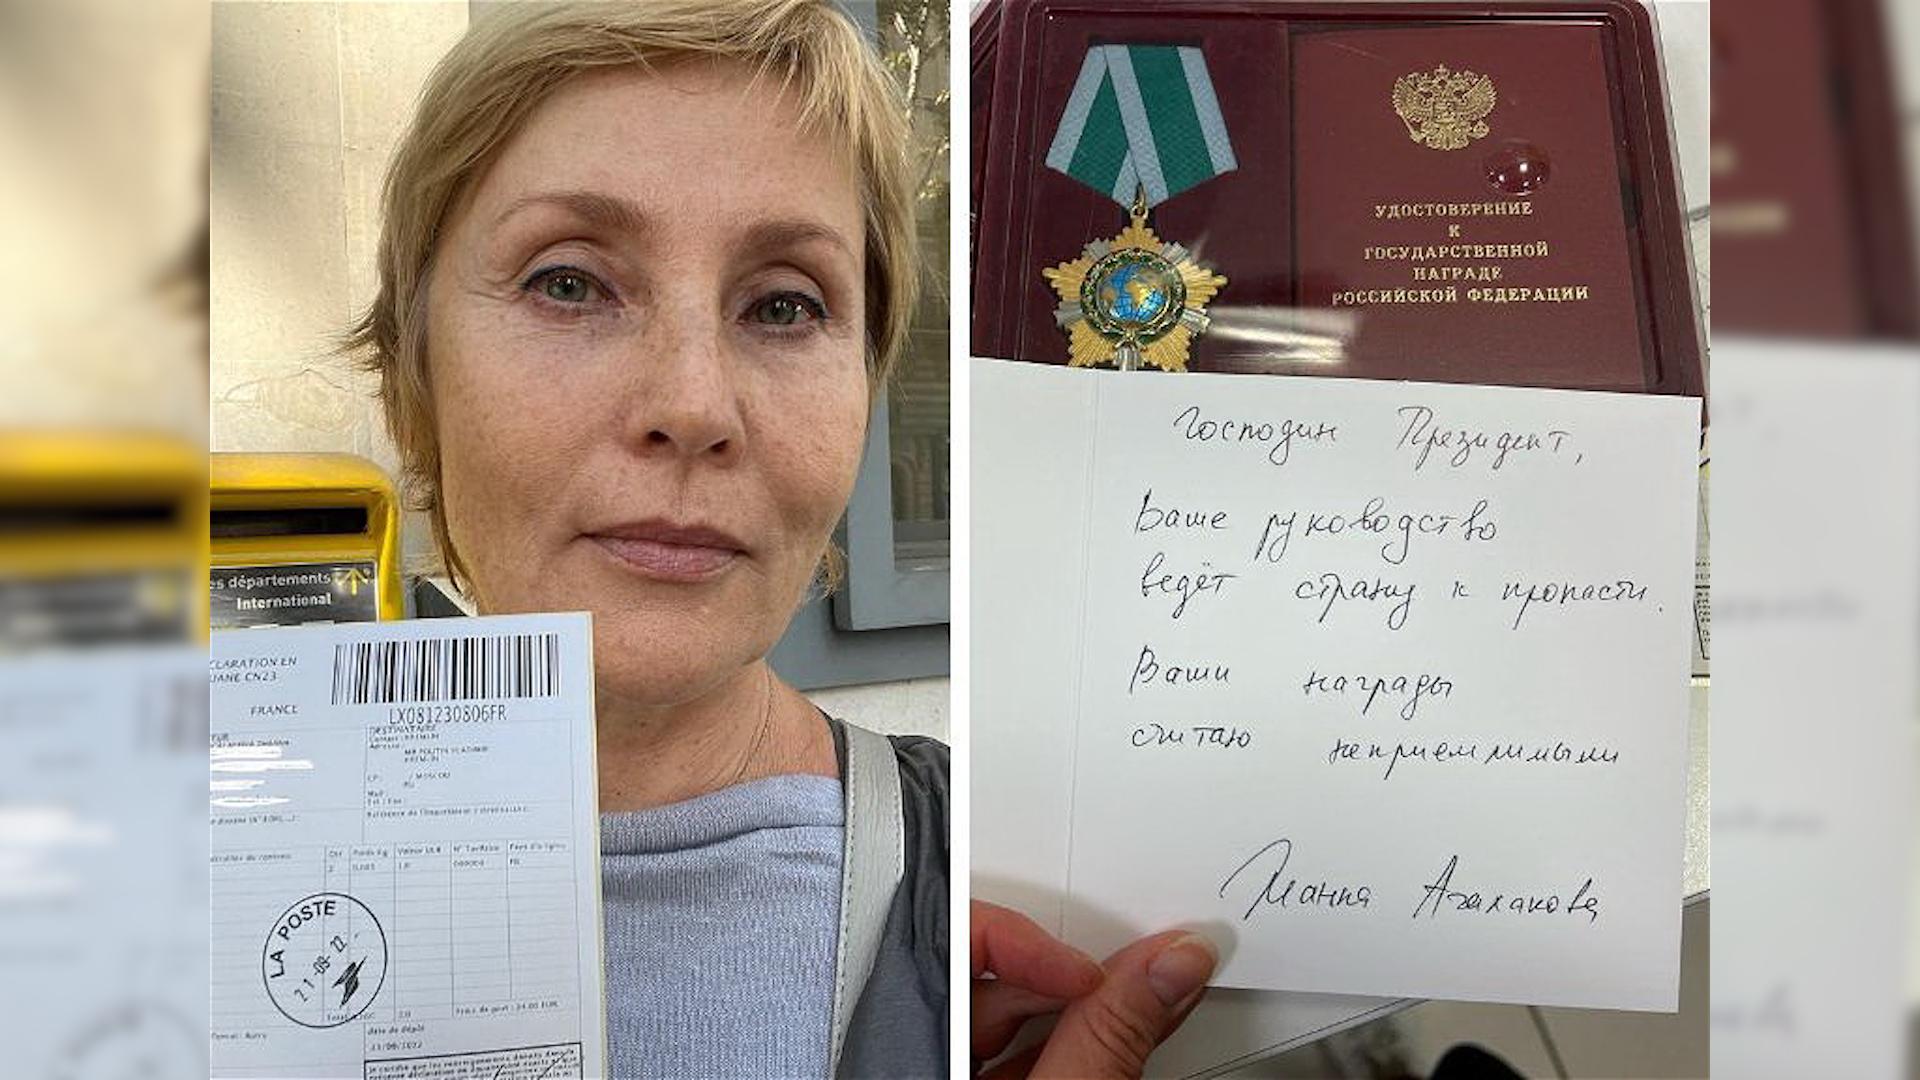 es départements
International
CLARATION EN
UANE CN23
FRANCE
LX081230806FR
DESTINATAIRE
MR POUTIN VLADIMIR
KREMLIN
/ MOSCOU
Total
LA POSTE
21-09-22
date de dépôt
21/09/2022
УДОСТОВЕРЕНИЕ
К
ГОСУДАРСТВЕННОЙ
НАГРАДЕ
РОССИЙСКОЙ ФЕДЕРАЦИИ
Господин Президент,
Ваше руководство
ведёт страну к пропасти.
Ваши награды
считаю неприемлимыми
Жанна Агалакова